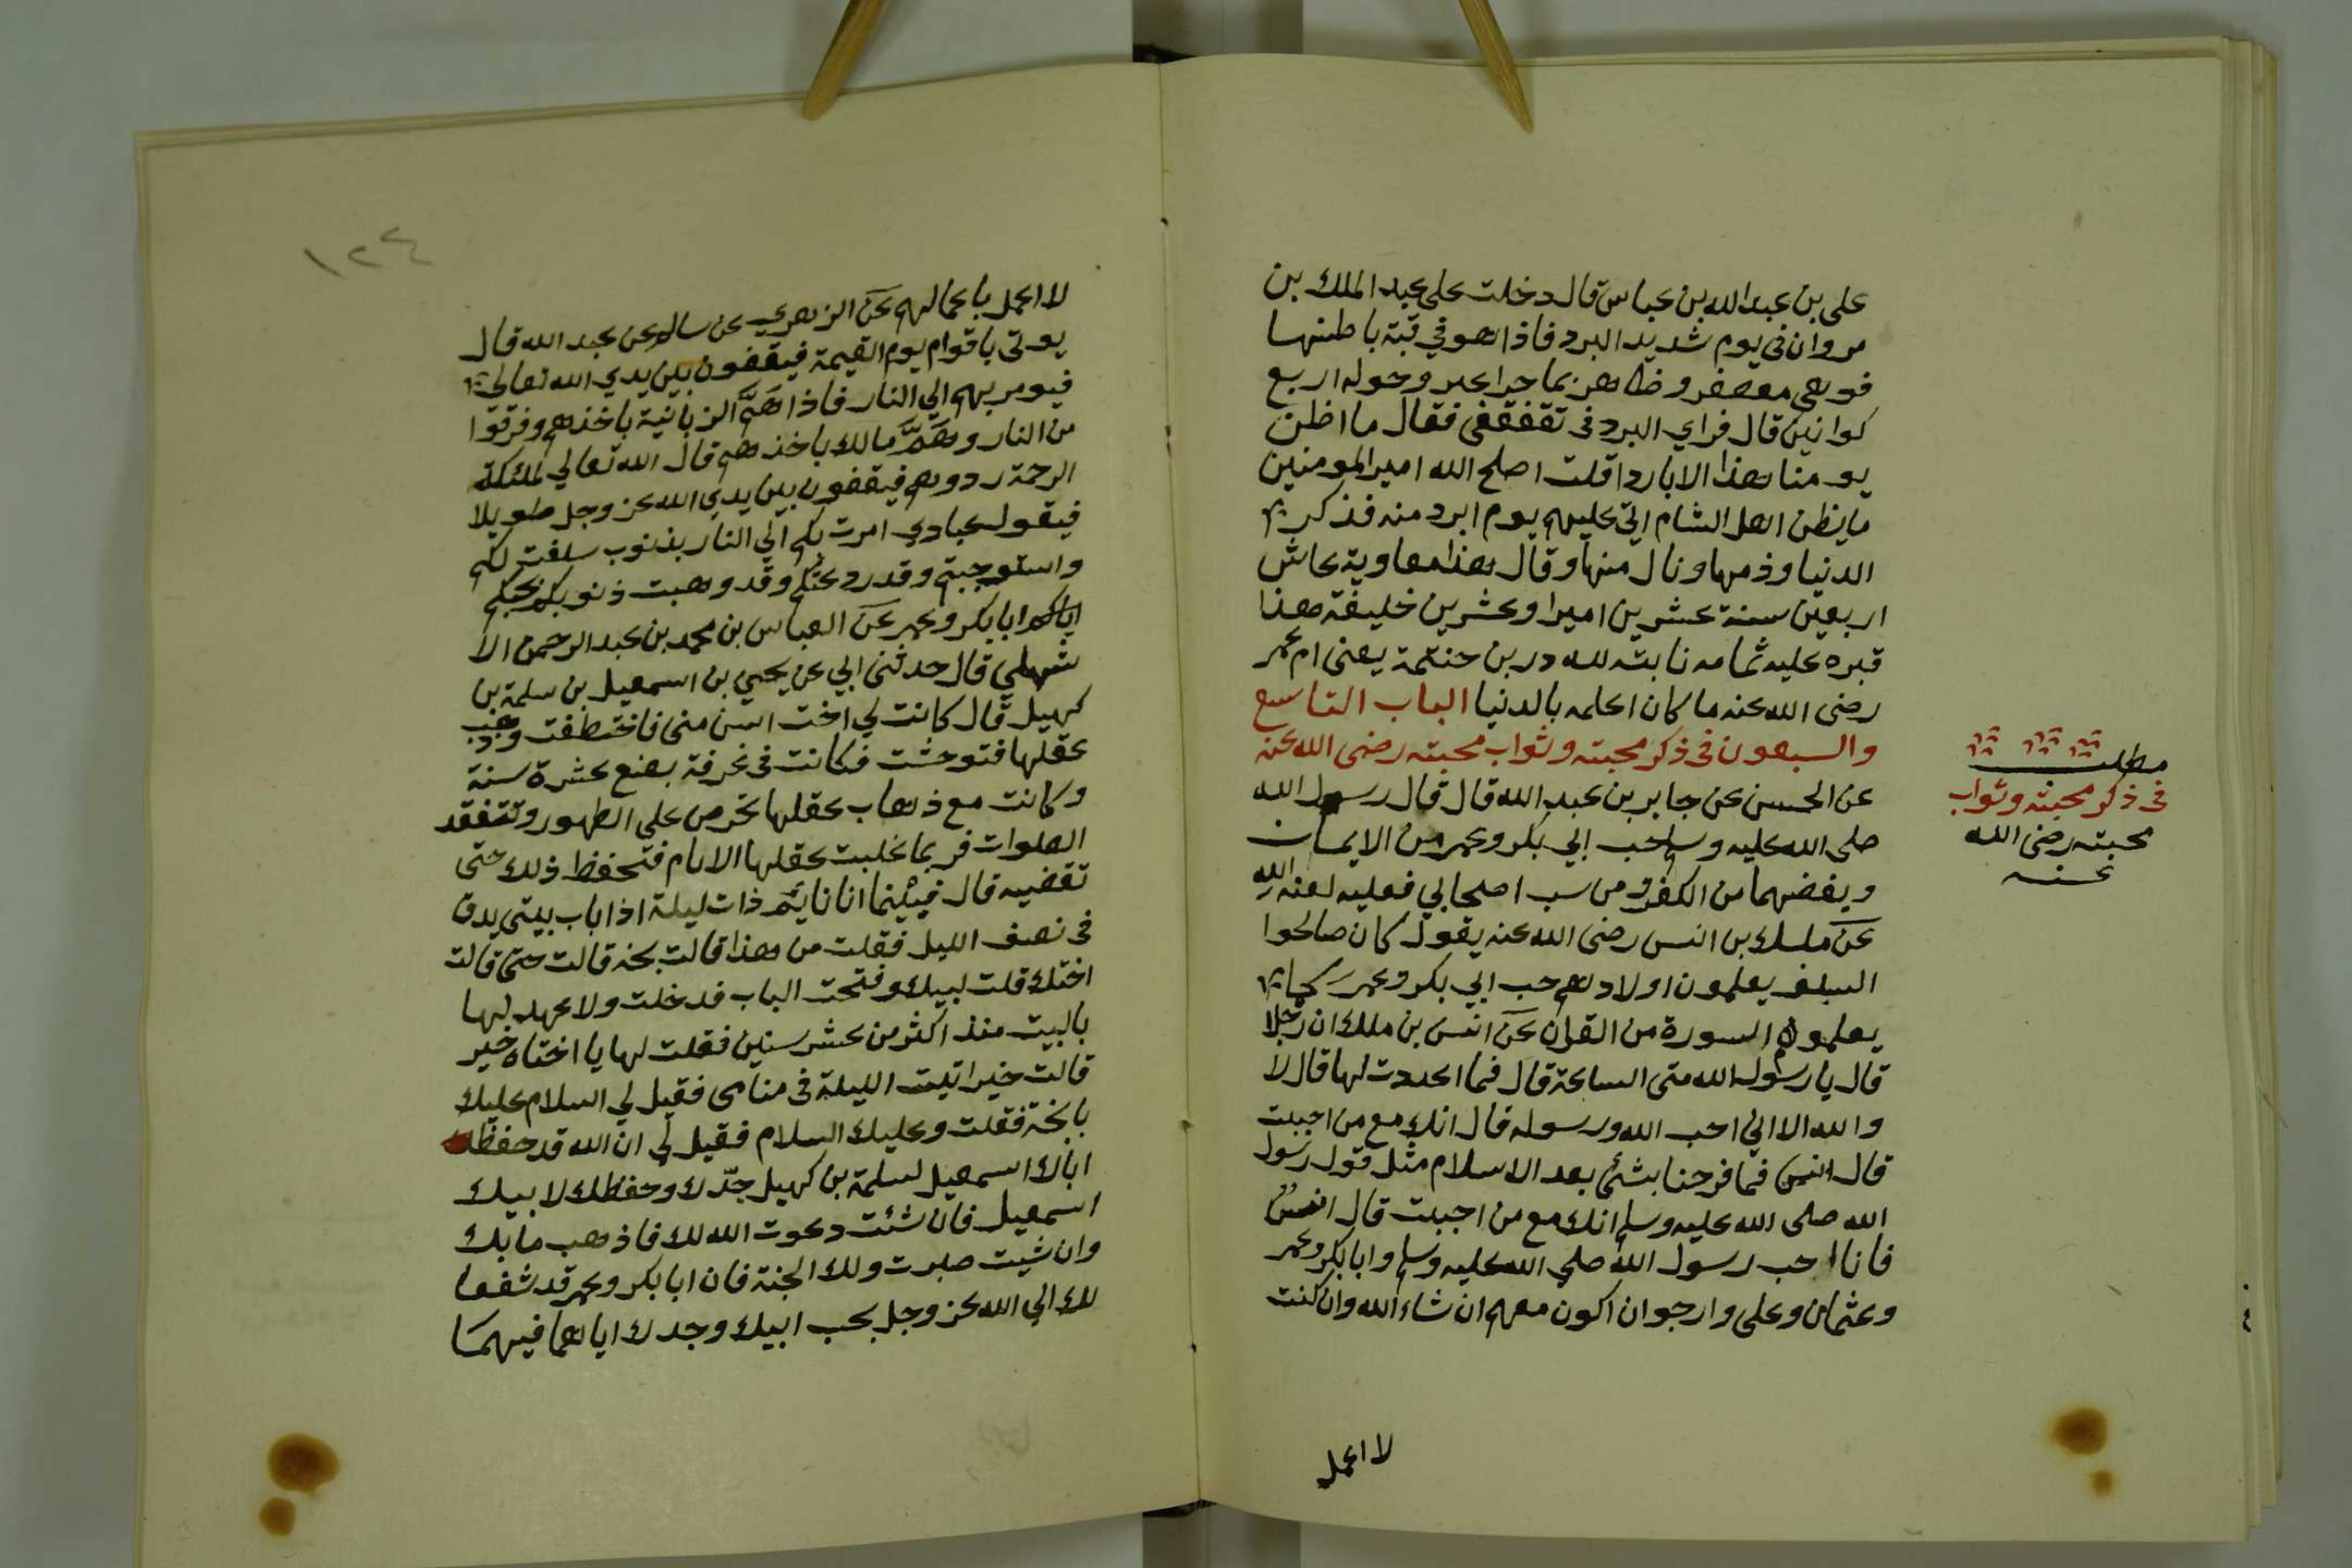 على بن عبدالله بن عباس قال دخلت على عبد الملك بن
مروان فى يوم شديد البرد فاذا هو في قبة باطنها
فوهى معصفر وظاهر بما حرا عبر وحوله اربع
كوانين قال فراي البرد فى تقفقفى فقال ما اظن
يومنا هذا الا باردا قلت اصلح الله امير المومنين
ما يظن اهل الشام اتى عليهم يوم ابرد منه فذكر
الدنيا وذمها ونال منها وقال هذا معاوية عاش
اربعين سنة عشرين اميرا وعشرين خليفة هذا
قبره عليه ثمامه نابته لله در بن حنتمة يعنى ام عمر
رضى الله عنه ما كان اعلمه بالدنيا الباب التاسع
والسبعون فى ذكر محبته وثواب محبته رضى الله عنه
عن الحسن عن جابر بن عبد الله قال قال رسول الله
صلى الله عليه وسلم حب ابي بكر وعمر من الايمان
وبغضهما من الكفر ومن سب اصحابي فعليه لعنه الله
عن ملك بن انس رضى الله عنه يقول كان صالحوا
السلف يعلمون اولادهم حب ابي بكر وعمر كما
يعلمون السورة من القران عن انس بن ملك ان رجلا
قال يا رسول الله متى الساعة قال فما اعددت لها قال لا
والله الا اني احب الله ورسوله قال انك مع من احببت
قال انس فما فرحنا بشئ بعد الاسلام مثل قول رسول
الله صلى الله عليه وسلم انك مع من احببت قال انس
فانا احب رسول الله صلي الله عليه وسلم وابا بكر وعمر
وعثمان وعلى وارجوا ان اكون معهم ان شاء الله وان كنت
لا اعمل
مطلب
فى ذكر محبته وثواب
محبته رضى الله
عنه
١٢٤
لا اعمل باعمالهم عن الزهري عن سالم عن عبد الله قال
يوتى باقوام يوم القيمة فيقفون بين يدي الله تعالى
فيومر بهم الي النار فاذا همَّ الزبانية باخذهم وفرقوا
من النار وهمَّ مالك باخذهم قال الله تعالي لملئكة
الرحمة ردوهم فيقفون بين يدي الله عز وجل طويلا
فيقول عبادي امرت بكم الي النار بذنوب سلفت لكم
واستوجبتم وقد ردعتكم وقد وهبت ذنوبكم بحبكم
اياكم ابا بكر وعمر عن العباس بن محمد بن عبد الرحمن الا
شهلي قال حدثنى ابي عن يحيي بن اسمعيل بن سلمة بن
كهيل قال كانت لي اخت اسن منى فاختطفت وذهب
عقلها فتوحشت فكانت فى غرفة بضع عشرة سنة
وكانت مع ذهاب عقلها تحرص على الطهور وتتفقد
الصلوات فربما غلبت عقلها الايام فتحفظ ذلك حتى
تقضيه قال فبينما انا نايم ذات ليلة اذا باب بيتى يدق
فى نصف الليل فقلت من هذا قالت بخه قالت حتى قالت
اختك قلت لبيك وفتحت الباب فدخلت ولا عهد لها
بالبيت منذ اكثر من عشر سنين فقلت لها يا اختاه خير
قالت خير اتيت الليلة فى منامى فقيل لي السلام عليك
يا بخة فقلت وعليك السلام فقيل لي ان الله قد حفظ
اباك اسمعيل لسلمة بن كهيل جدّك وحفظك لابيك
اسمعيل فان شئت دعوت الله لك فاذهب ما بك
وان شيت صبرت ولك الجنة فان ابا بكر وعمر قد شفعا
لك الي الله عز وجل بحب ابيك وجدك اياهما فيهما